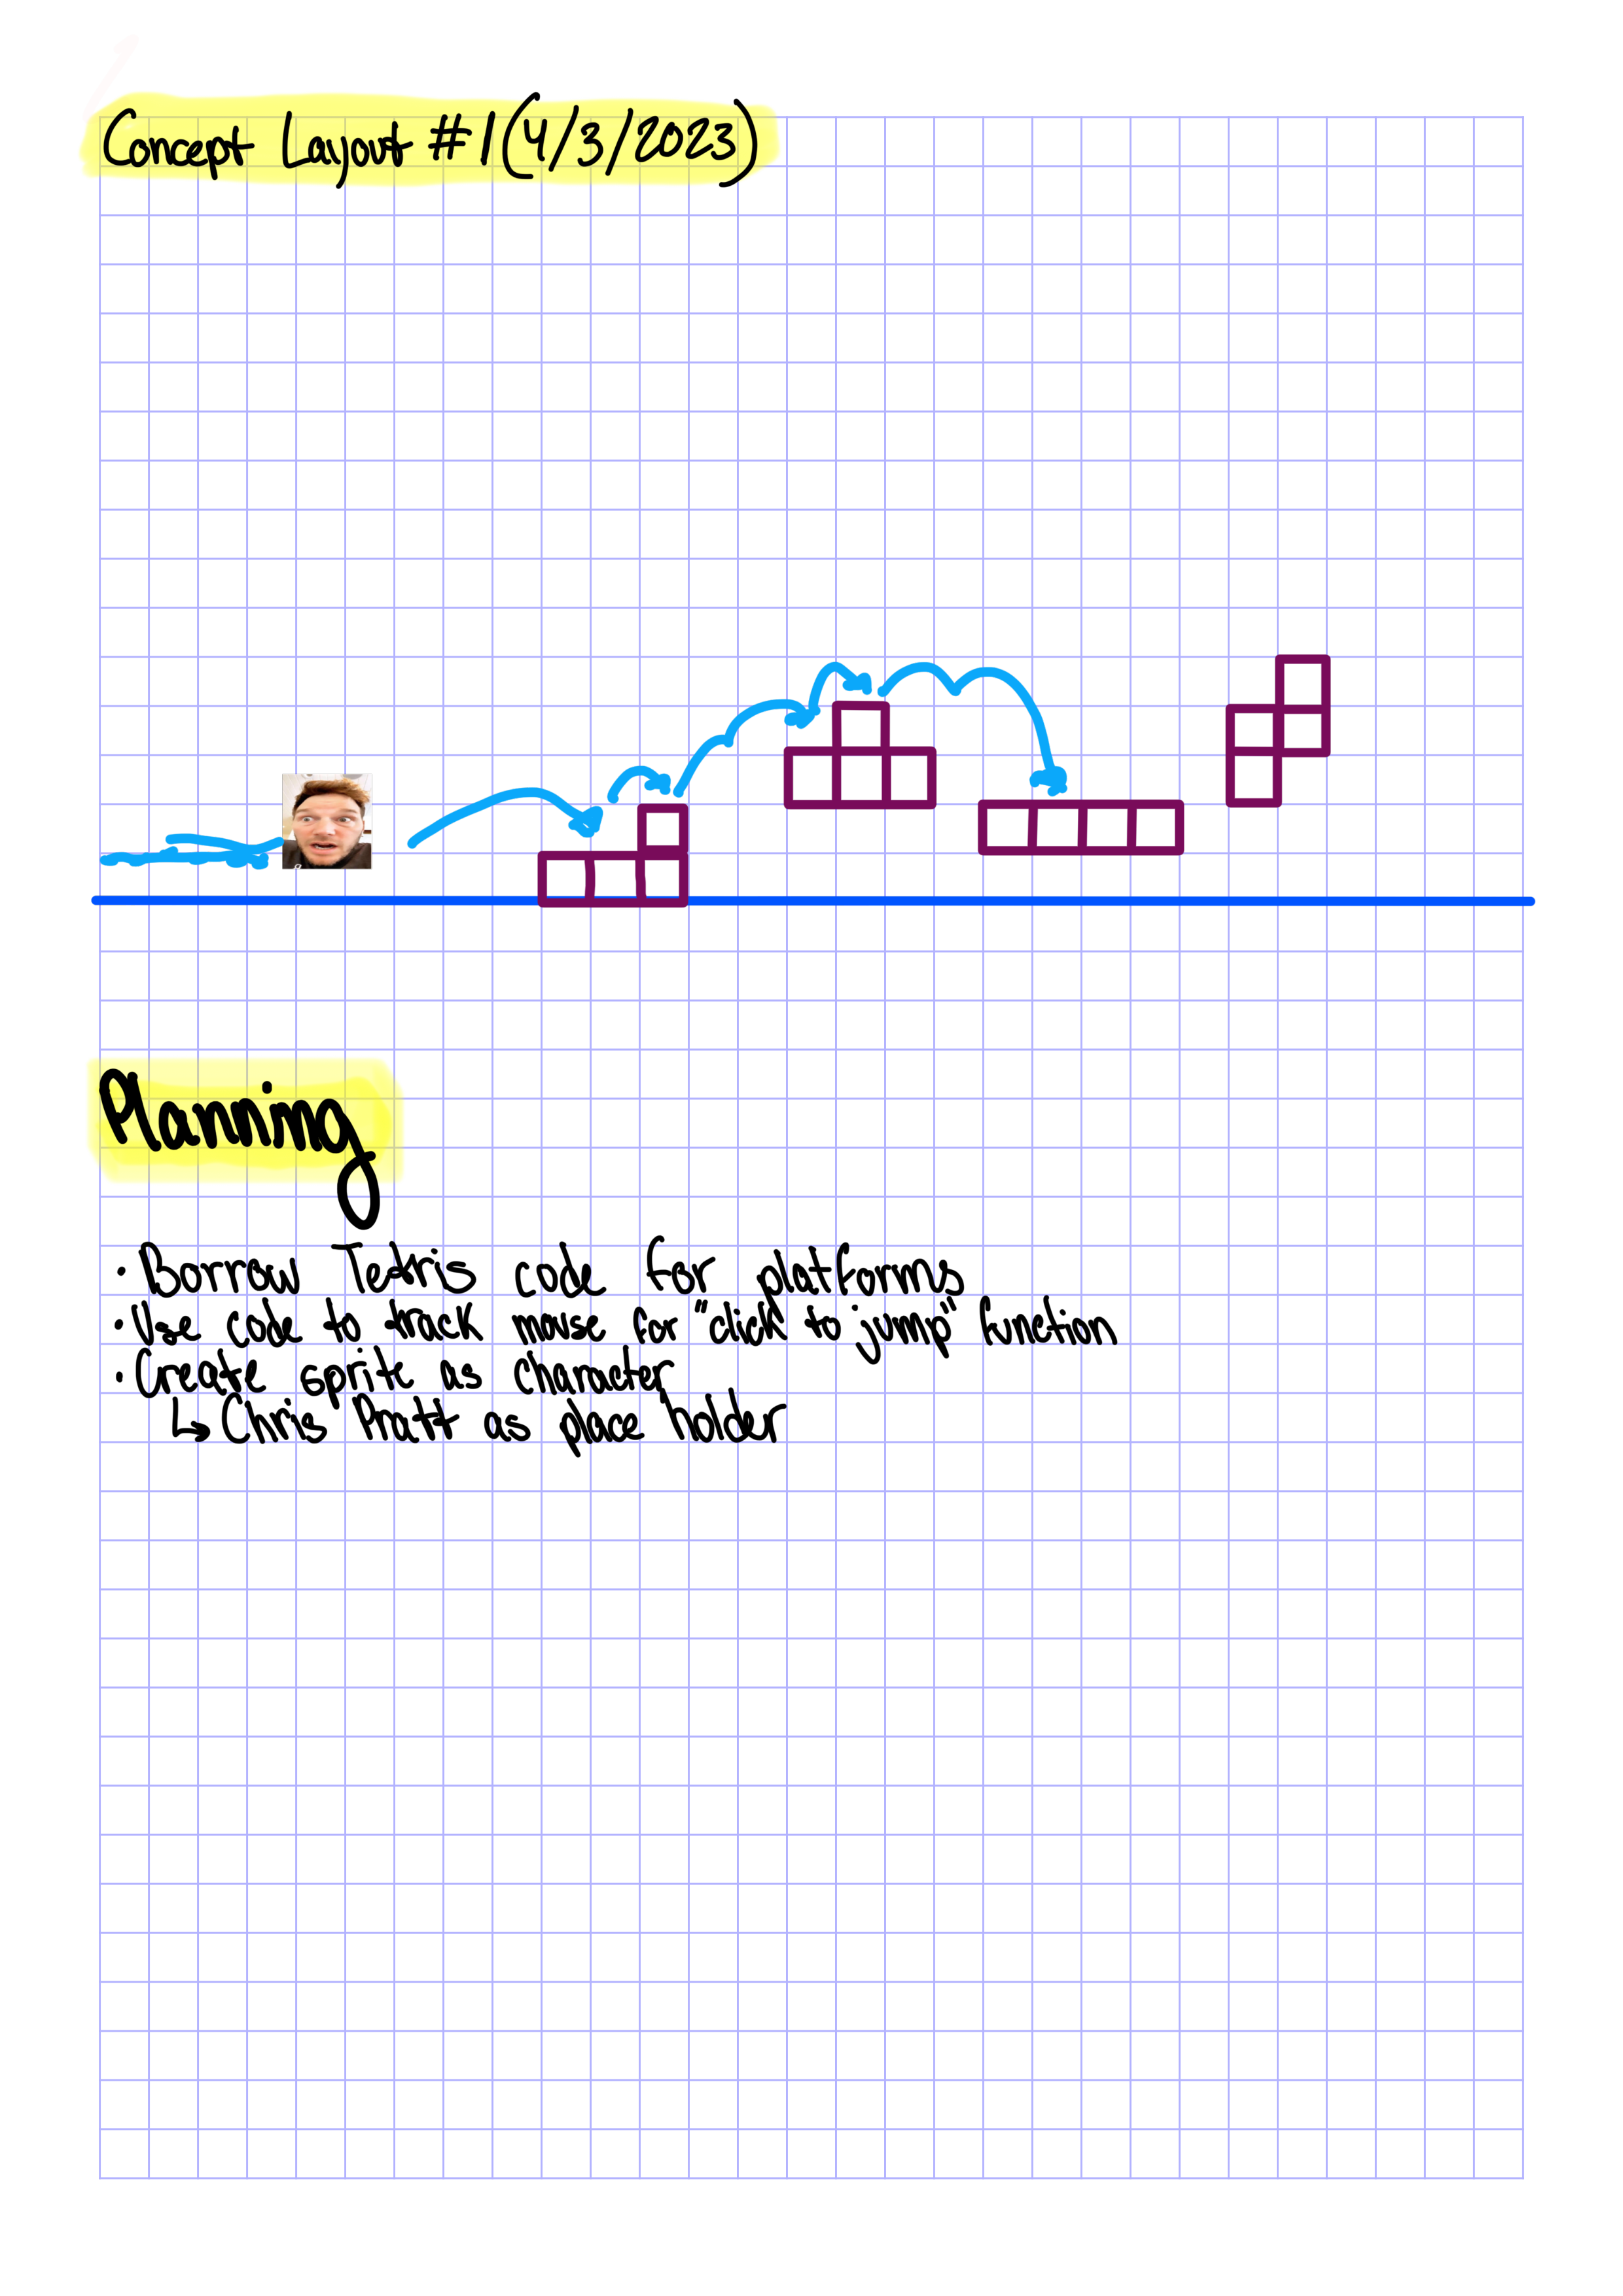 Concept Layout #1 (4/3/2023)
Planning
· Borrow Tetris code for platforms
· Use code to track mouse for "click to jump" function
· Create sprite as character
↳ Chris Pratt as place holder